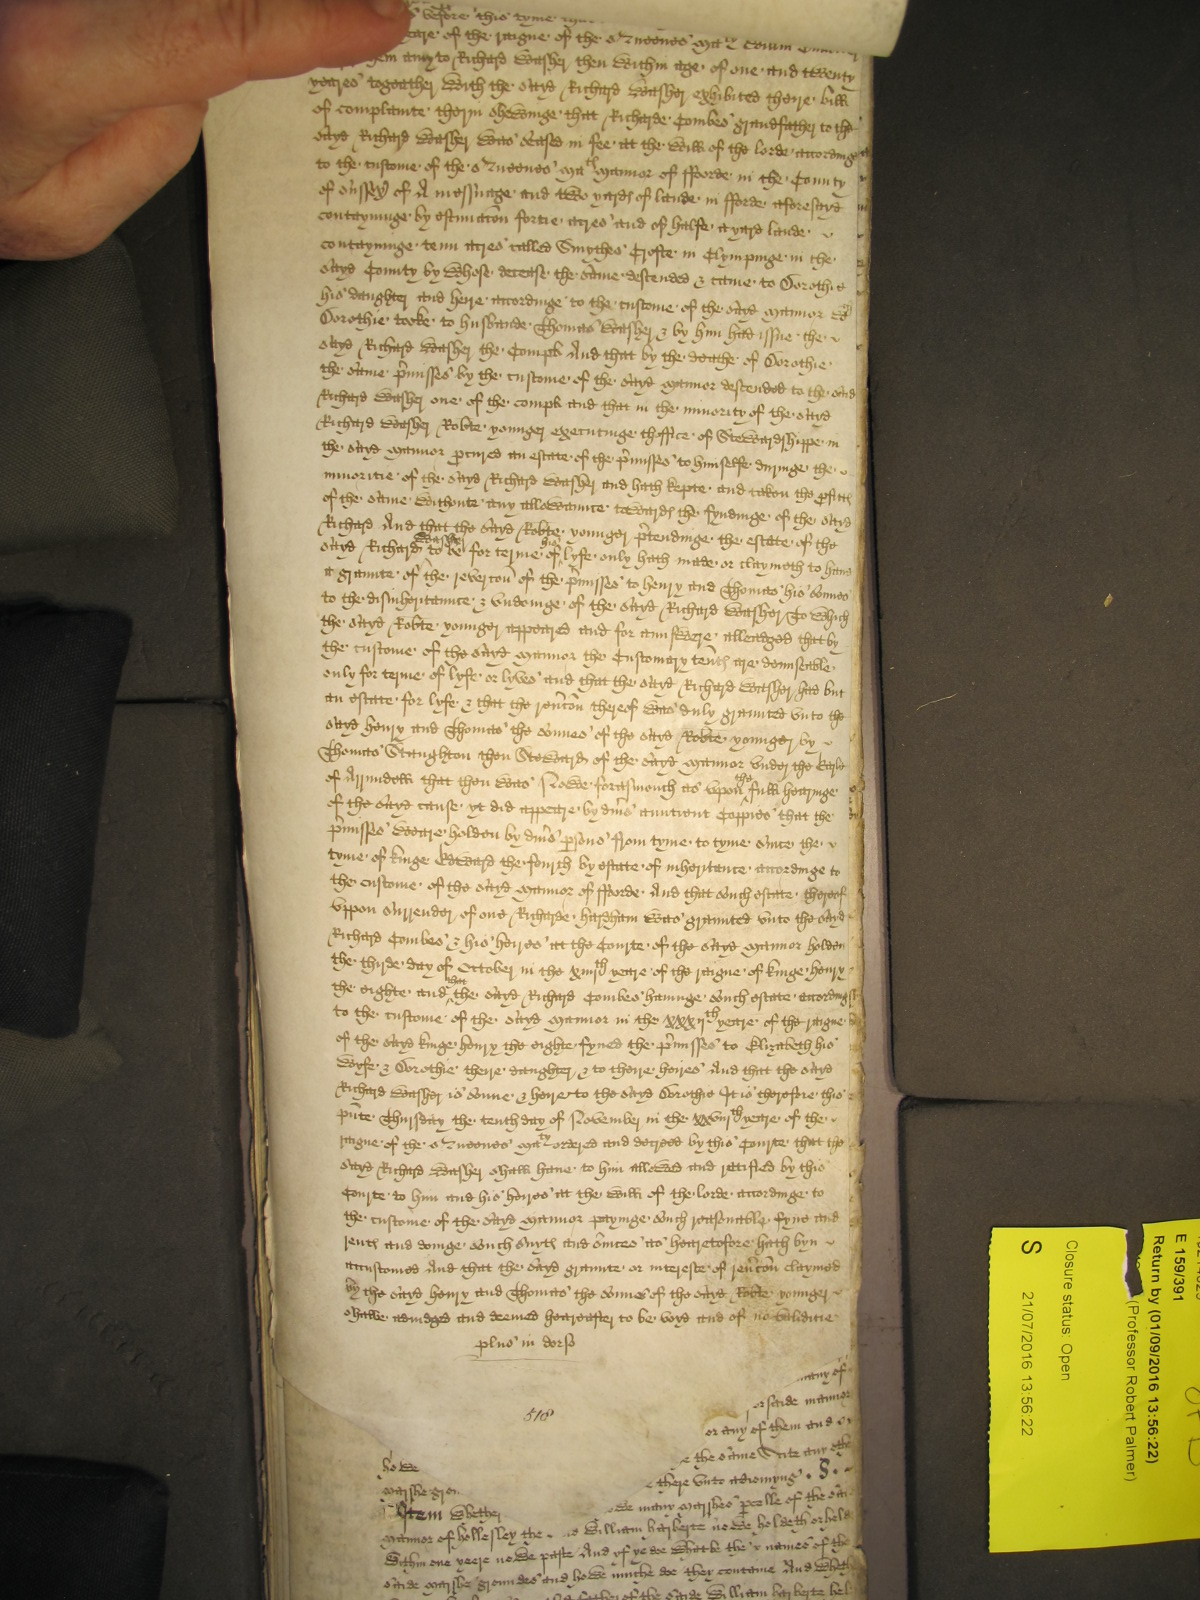 before this tyme
yeare of the raigne of the Queenes Maty
them and to Richard Washer then within age of one and twenty
yeares togeather with the sayd Richard Washer exhibited theire bill
of complainte therin shewinge that Richarde Combes grandfather to the
sayd Richard Washer was seased in fee at the will of the lorde accordinge
to the custome of the Queenes Mats mannor of fforde in the County
of Sussex of A messuage and two yards of lande in fforde aforesayd
contayninge by estimacon fortie acres and of halfe a yard lande
contayninge tenn acres called Smythes Crofte in Clympinge in the
sayd County by whose decease the same descended & came to Dorothie
his daughter and heire accordinge to the custome of the sayd mannor wch
Dorothie tooke to husbande Thomas Washer & by him had issue the
sayd Richard Washer the Complt And that by the deathe of Dorothie
the same prmisses by the custome of the sayd mannor descended to the sayd
Richard Washer one of the complts and that in the minority of the sayd
Richard Washer Robte younger executinge thoffice of Stewardshippe in
the sayd mannor procured an estate of the prmisses to himselfe duringe the
minoritie of the sayd Richard Washer and hath kepte and taken the profitts
of the same withoute any allowance towards the fyndinge of the sayd
Richard And that the sayd Robte younger prtendinge the estate of the
sayd Richard Washer to be for terme of his lyfe only hath made or claymeth to have
a graunte of the revercon of the prmisses to henry and Thomas his sonnes
to the disinheritance & undoinge of the sayd Richard Washer To which
the sayd Robte younger appeared and for answere alleadged that by
the custome of the sayd mannor the Customary tents are demiseable
only for terme of lyfe or lyves and that the sayd Richard Washer had but
an estate for lyfe & that the revcon thereof was duly graunted unto the
sayd henry and Thomas the sonnes of the sayd Robte younger by
Thomas Staughton then Steward of the sayd mannor under the Earle
of Arrundell that then was Nowe forasmuch as upon the full hearinge
of the sayd cause yt did appeare by divs auncient Coppies that the
prmisses weare holden by divs psons from tyme to tyme since the
tyme of kinge Edward the fourth by estate of inheritance accordinge to
the custome of the sayd mannor of fforde And that such estate thereof
uppon surrender of one Richarde hardham was graunted unto the sayd
Richard Combes & his heires at the Courte of the sayd mannor holden
the thirde day of October in the xiiijth yeare of the raigne of kinge henry
the eighte and that the sayd Richard Combes havinge such estate accordinge
to the custome of the sayd mannor in the yeare of the raigne
of the sayd kinge henry the eighte fyned the prmisses to Elizabeth his
wyfe & Dorothie there daughter & to theire heires And that the sayd
Richard Washer is sonne & heire to the sayd Dorothie It is therefore this
prsente Thursday the tenth day of November in the yeare of the
raigne of the Queenes Maty ordered and decreed by this Courte that the
sayd Richard Washer shall have to him allowed and ratified by this
Courte to him and his heires at the will of the lorde accordinge to
the custome of the sayd mannor payinge such reasonable fyne and
rents and doinge such suyts and services as heeretofore hath byn
accustomed And that the sayd graunte or intereste of revcon claymed
by the sayd henry and Thomas the sonnes of the sayd Robte younger
shalbe adiudged and deemed heereafter to be voyd and of no validitie
plus in dorso
518
many of
orsaide mannor
or any of them and
howe
the same write any
marshe groun
there unto adioining . S .
Item whether
howe many marshes pcelle of the
mannor of hollesley the William barberte nowe holdeth or held
within one yeere nowe paste And yf ye doe what be the names of the
saide marshe groundes and howe muche doe they containe And
father of the saide William barberte
E 159/391
Return by (01/09/2016 13:56:22)
(Professor Robert Palmer)
Closure status: Open
21/07/2016 13:56:22
S